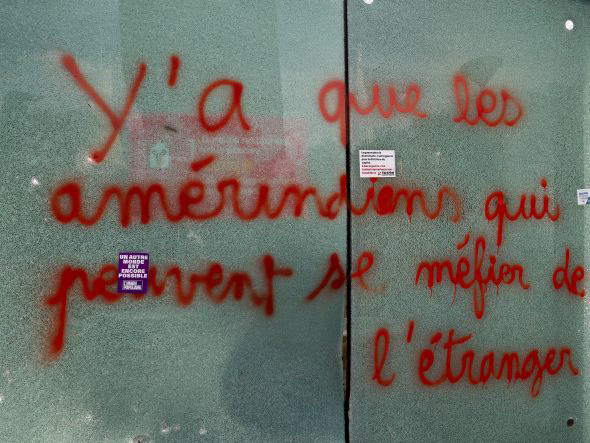 Y'a que les
amérindiens qui
peuvent se méfier de
l'étranger
UN AUTRE
MONDE
EST
ENCORE
POSSIBLE